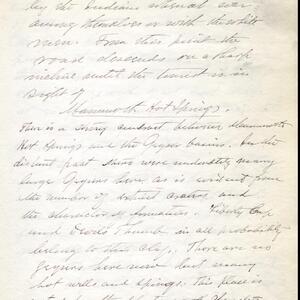 by the Indians
among themselves or with the white
men. From this point the
road descends on a sharp
incline until the tourist is in
sight of
Mammoth Hot Springs.
There is a strong contrast between Mammoth
Hot Springs and the Geyser basins. In the
distant past there were undoubtedly many
large Geysers here, as is evident from
the number of extinct craters, and
the character of formation. Liberty Cap
and Devil's Thumb in all probability
belong to this class. There are no
geysers here now but many
hot wells and springs. This place is